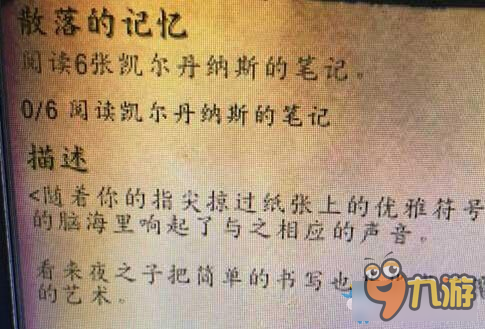 散落的记忆
阅读6张凯尔丹纳斯的笔记。
0/6 阅读凯尔丹纳斯的笔记
描述
<随着你的指尖掠过纸张上的优雅符号
的脑海里响起了与之相应的声音。
看来夜之子把简单的书写也
的艺术。
九游